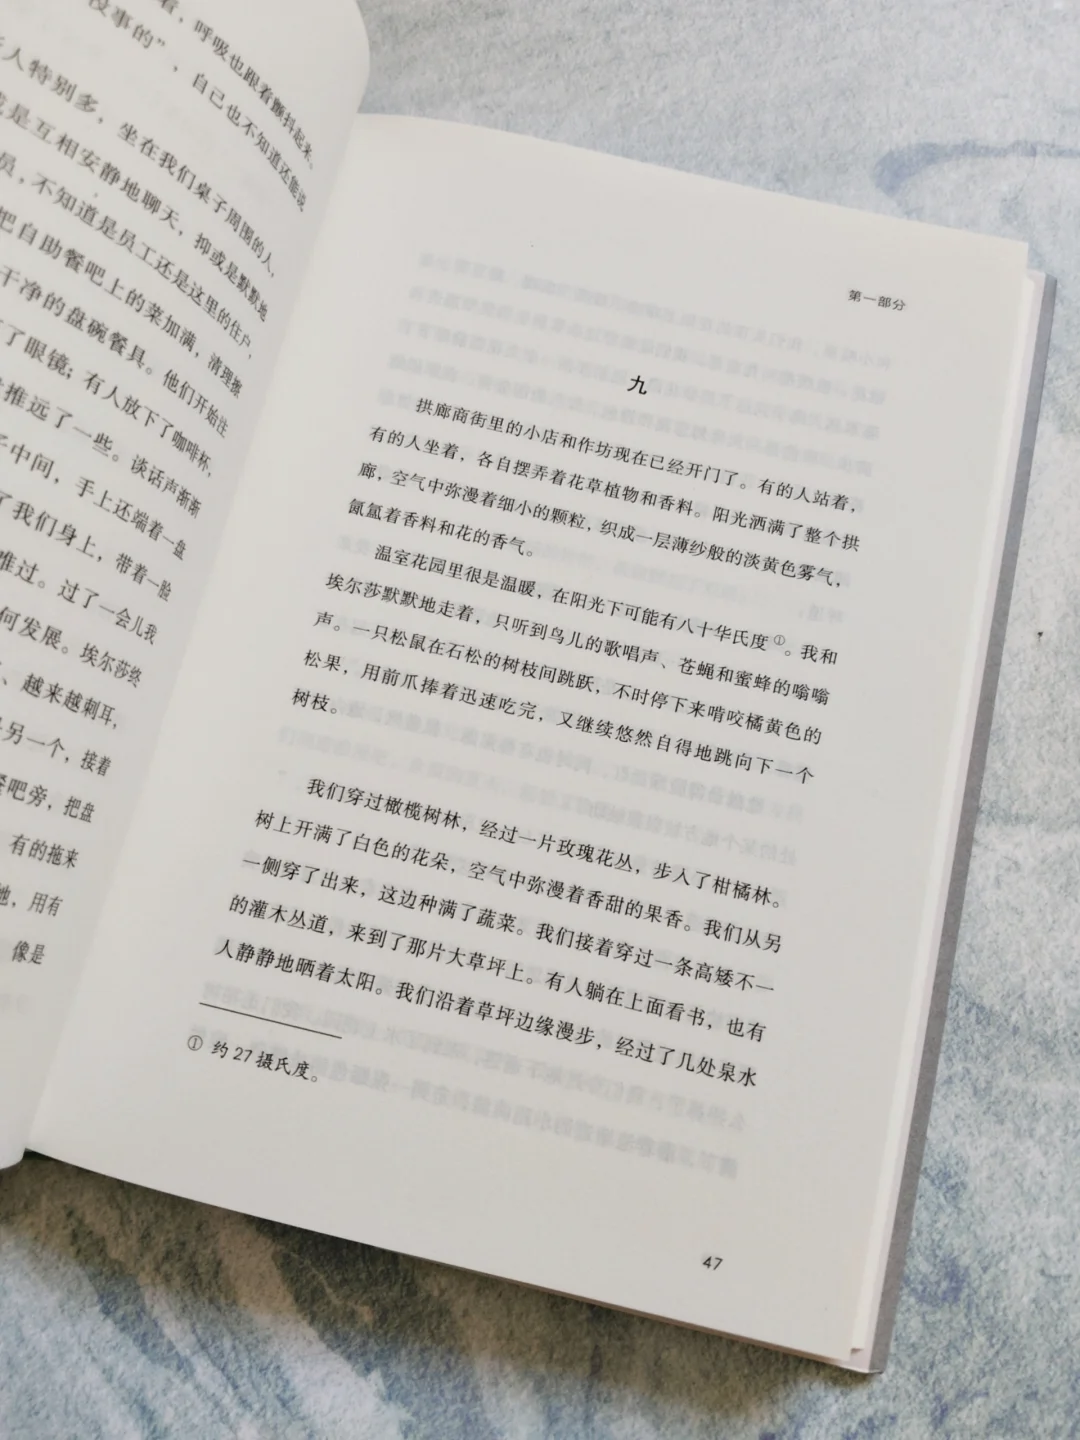 着，呼吸也跟着颤抖起来。
没事的”，自己也不知道还能说
人特别多，坐在我们桌子周围的人，
是互相安静地聊天，抑或是默默地
员，不知道是员工还是这里的住户，
把自助餐吧上的菜加满，清理擦
干净的盘碗餐具。他们开始注
了眼镜；有人放下了咖啡杯，
推远了一些。谈话声渐渐
子中间，手上还端着一盘
了我们身上，带着一脸
难过。过了一会儿我
何发展。埃尔莎终
、越来越刺耳，
另一个，接着
餐吧旁，把盘
有的拖来
地，用有
像是
第一部分
九
拱廊商街里的小店和作坊现在已经开门了。有的人站着，
有的人坐着，各自摆弄着花草植物和香料。阳光洒满了整个拱
廊，空气中弥漫着细小的颗粒，织成一层薄纱般的淡黄色雾气，
氤氲着香料和花的香气。
温室花园里很是温暖，在阳光下可能有八十华氏度①。我和
埃尔莎默默地走着，只听到鸟儿的歌唱声、苍蝇和蜜蜂的嗡嗡
声。一只松鼠在石松的树枝间跳跃，不时停下来啃咬橘黄色的
松果，用前爪捧着迅速吃完，又继续悠然自得地跳向下一个
树枝。
我们穿过橄榄树林，经过一片玫瑰花丛，步入了柑橘林。
树上开满了白色的花朵，空气中弥漫着香甜的果香。我们从另
一侧穿了出来，这边种满了蔬菜。我们接着穿过一条高矮不一
的灌木丛道，来到了那片大草坪上。有人躺在上面看书，也有
人静静地晒着太阳。我们沿着草坪边缘漫步，经过了几处泉水
① 约27摄氏度。
47